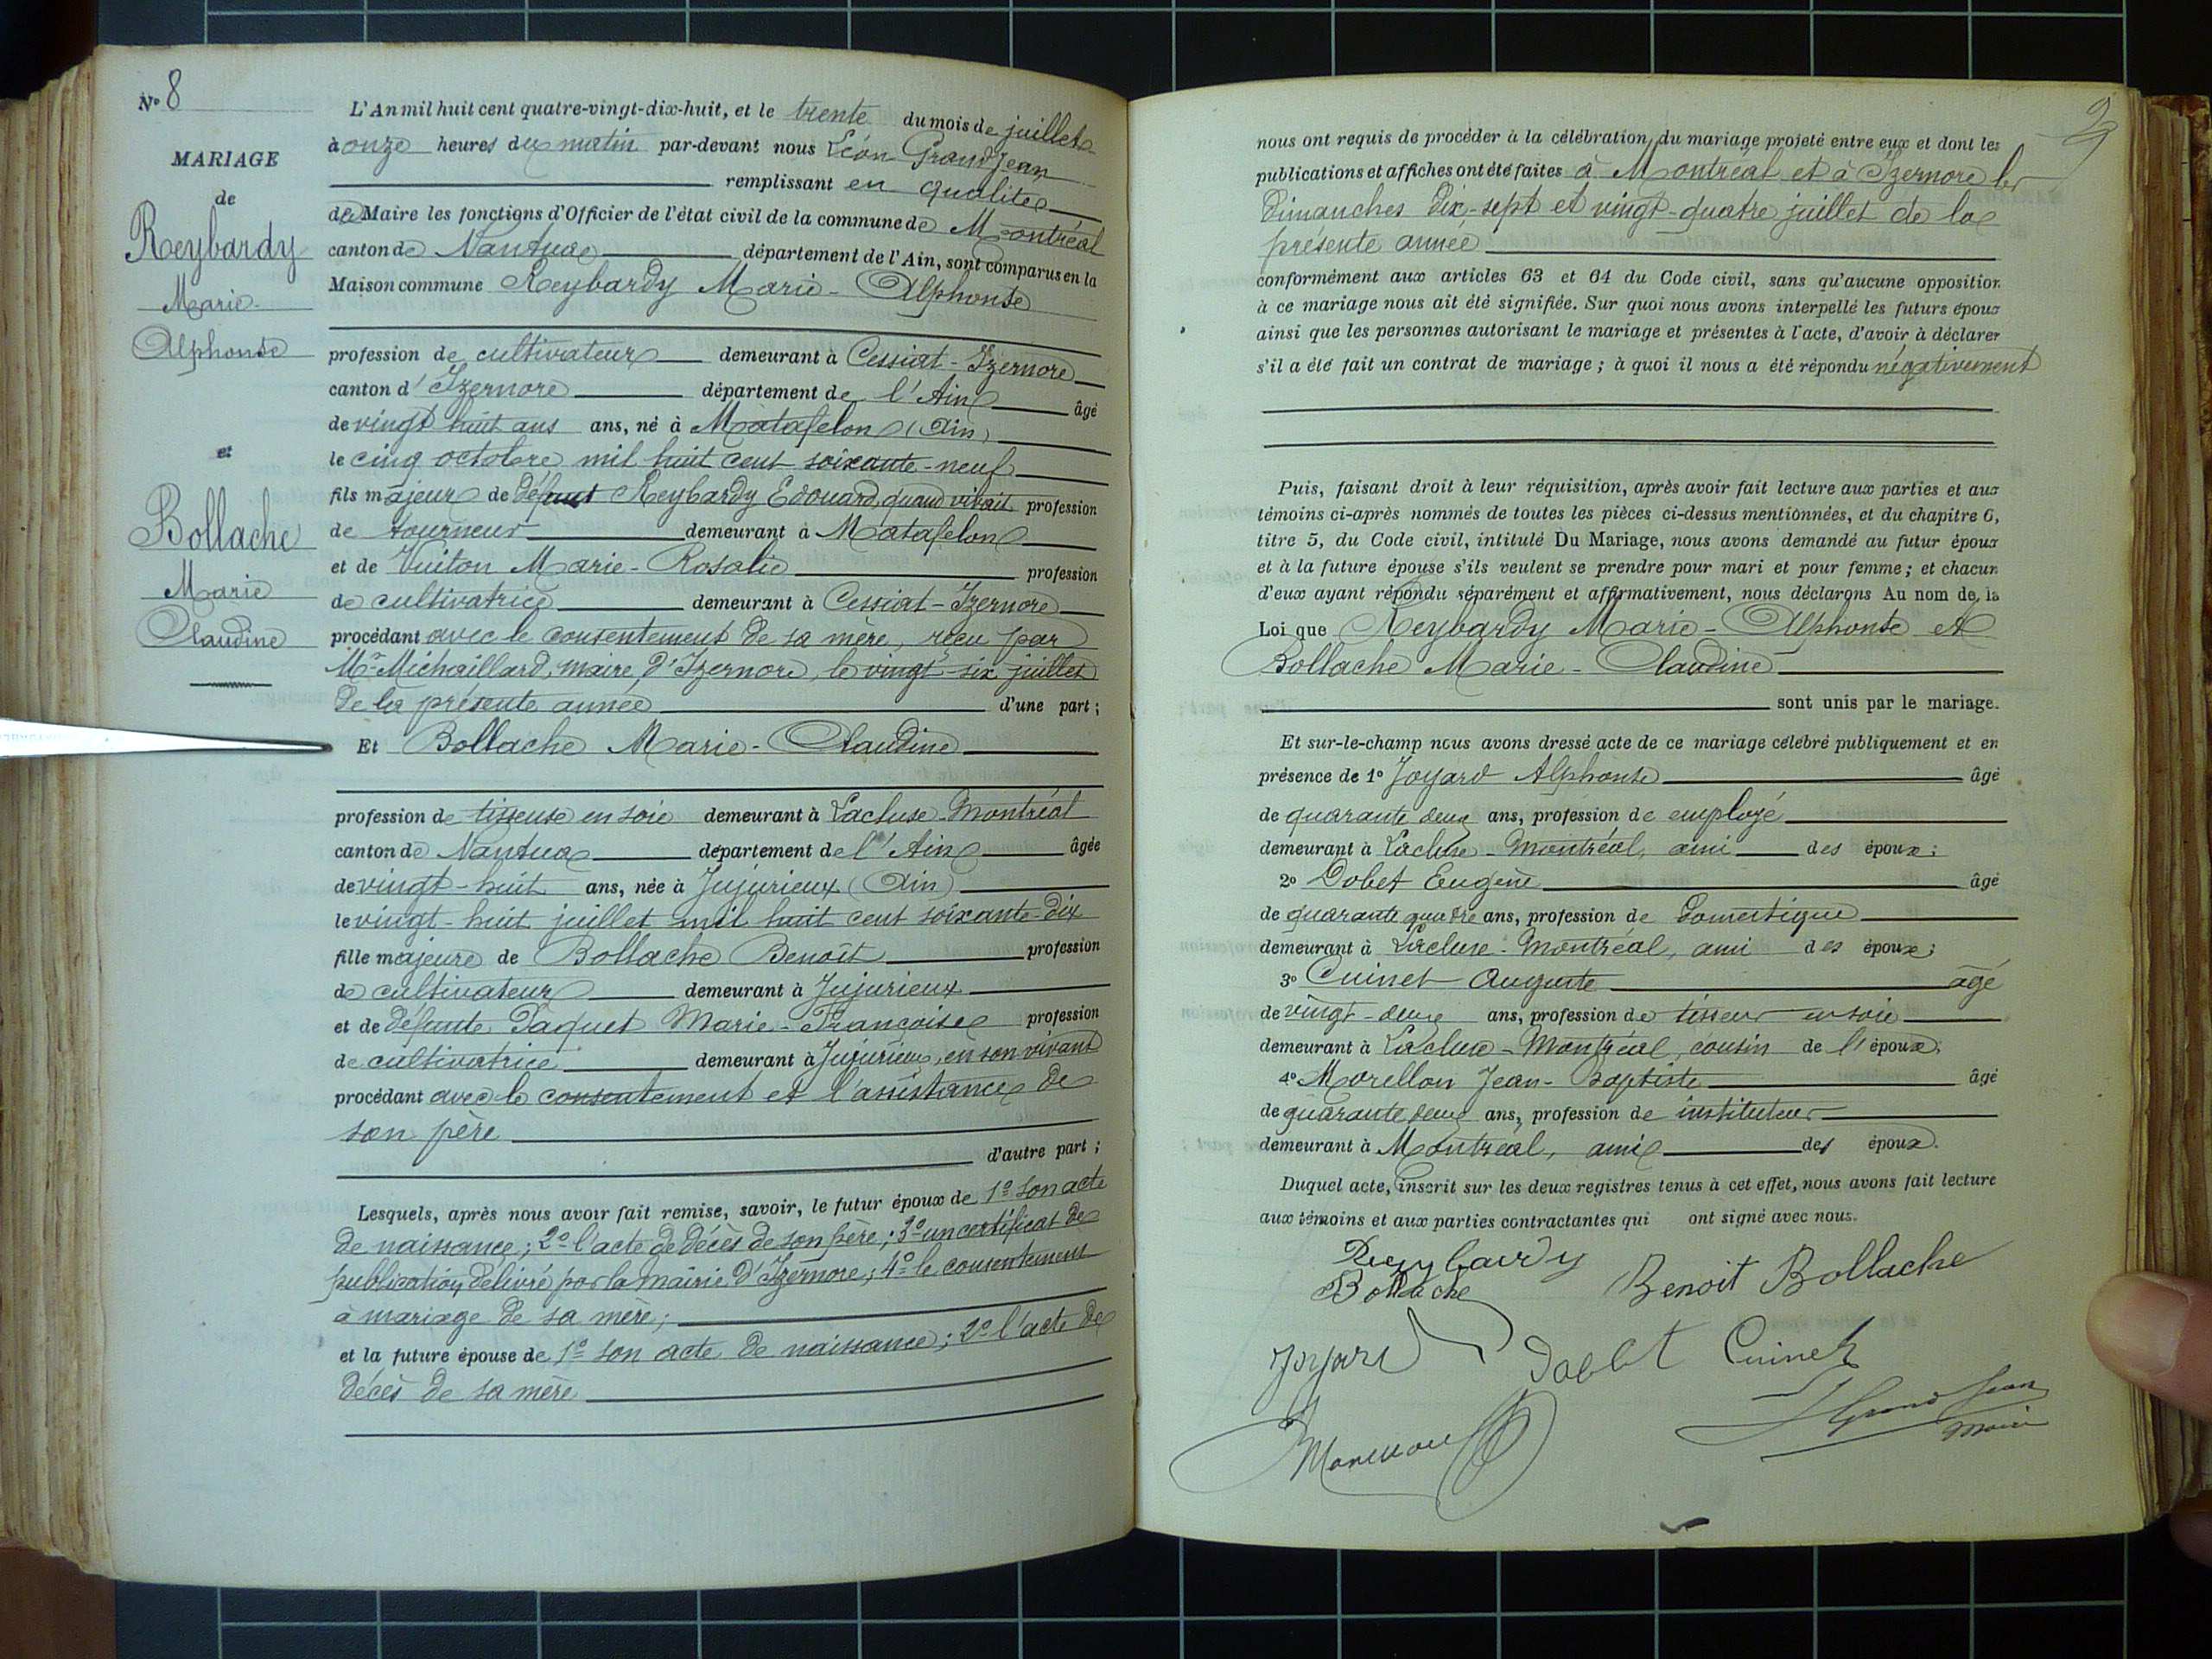 N° 8
MARIAGE
de
Reybardy
Marie-
Alphonse
et
Bollache
Marie
Claudine
L'An mil huit cent quatre-vingt-dix-huit, et le trente du mois de juillet
à onze heures du matin par-devant nous Léon GrandJean
remplissant en qualité
de Maire les fonctions d'Officier de l'état civil de la commune de Montréal
canton de Nantua département de l'Ain, sont comparus en la
Maison commune Reybardy Marie-Alphonse
profession de cultivateur demeurant à Cessiat-Izernore
canton d'Izernore département de l'Ain âgé
de vingt huit ans ans, né à Matafelon (Ain)
le cinq octobre mil huit cent soixante-neuf
fils majeur de défunt Reybardy Edouard, quand vivait profession
de tourneur demeurant à Matafelon
et de Vuiton Marie-Rosalie profession
de cultivatrice demeurant à Cessiat-Izernore
procédant avec le consentement de sa mère, reçu par
Mr Michaillard, maire d'Izernore, le vingt-six juillet
de la présente année d'une part ;
Et Bollache Marie-Claudine
profession de tisseuse en soie demeurant à Lacluse-Montréal
canton de Nantua département de l'Ain âgée
de vingt-huit ans, née à Jujurieux (Ain)
le vingt-huit juillet mil huit cent soixante-dix
fille majeure de Bollache Benoît profession
de cultivateur demeurant à Jujurieux
et de défunte Paquet Marie-Françoise profession
de cultivatrice demeurant à Jujurieux, en son vivant
procédant avec le consentement et l'assistance de
son père
d'autre part ;
Lesquels, après nous avoir fait remise, savoir, le futur époux de 1° son acte
de naissance ; 2° l'acte de décès de son père ; 3° un certificat de
publication délivré par la mairie d'Izernore ; 4° le consentement
à mariage de sa mère ;
et la future épouse de 1° son acte de naissance ; 2° l'acte de
décès de sa mère
9
nous ont requis de procéder à la célébration du mariage projeté entre eux et dont les
publications et affiches ont été faites à Montréal et à Izernore les
dimanches dix-sept et vingt-quatre juillet de la
présente année
conformément aux articles 63 et 64 du Code civil, sans qu'aucune opposition
à ce mariage nous ait été signifiée. Sur quoi nous avons interpellé les futurs époux
ainsi que les personnes autorisant le mariage et présentes à l'acte, d'avoir à déclarer
s'il a été fait un contrat de mariage ; à quoi il nous a été répondu négativement
Puis, faisant droit à leur réquisition, après avoir fait lecture aux parties et aux
témoins ci-après nommés de toutes les pièces ci-dessus mentionnées, et du chapitre 6,
titre 5, du Code civil, intitulé Du Mariage, nous avons demandé au futur époux
et à la future épouse s'ils veulent se prendre pour mari et pour femme ; et chacun
d'eux ayant répondu séparément et affirmativement, nous déclarons Au nom de la
Loi que Reybardy Marie-Alphonse et
Bollache Marie-Claudine
sont unis par le mariage.
Et sur-le-champ nous avons dressé acte de ce mariage célébré publiquement et en
présence de 1° Joyard Alphonse âgé
de quarante deux ans, profession de employé
demeurant à Lacluse-Montréal, ami des époux ;
2° Dobet Eugène âgé
de quarante quatre ans, profession de domestique
demeurant à Lacluse-Montréal, ami des époux ;
3° Cuinet Auguste âgé
de vingt-deux ans, profession de tisseur en soie
demeurant à Lacluse-Montréal, cousin de l'époux ;
4° Morellon Jean-Baptiste âgé
de quarante deux ans, profession de instituteur
demeurant à Montréal, ami des époux.
Duquel acte, inscrit sur les deux registres tenus à cet effet, nous avons fait lecture
aux témoins et aux parties contractantes qui ont signé avec nous.
Reybardy
Bollache Benoit Bollache
Joyard Dobet Cuinet
Morellon
L GrandJean
maire